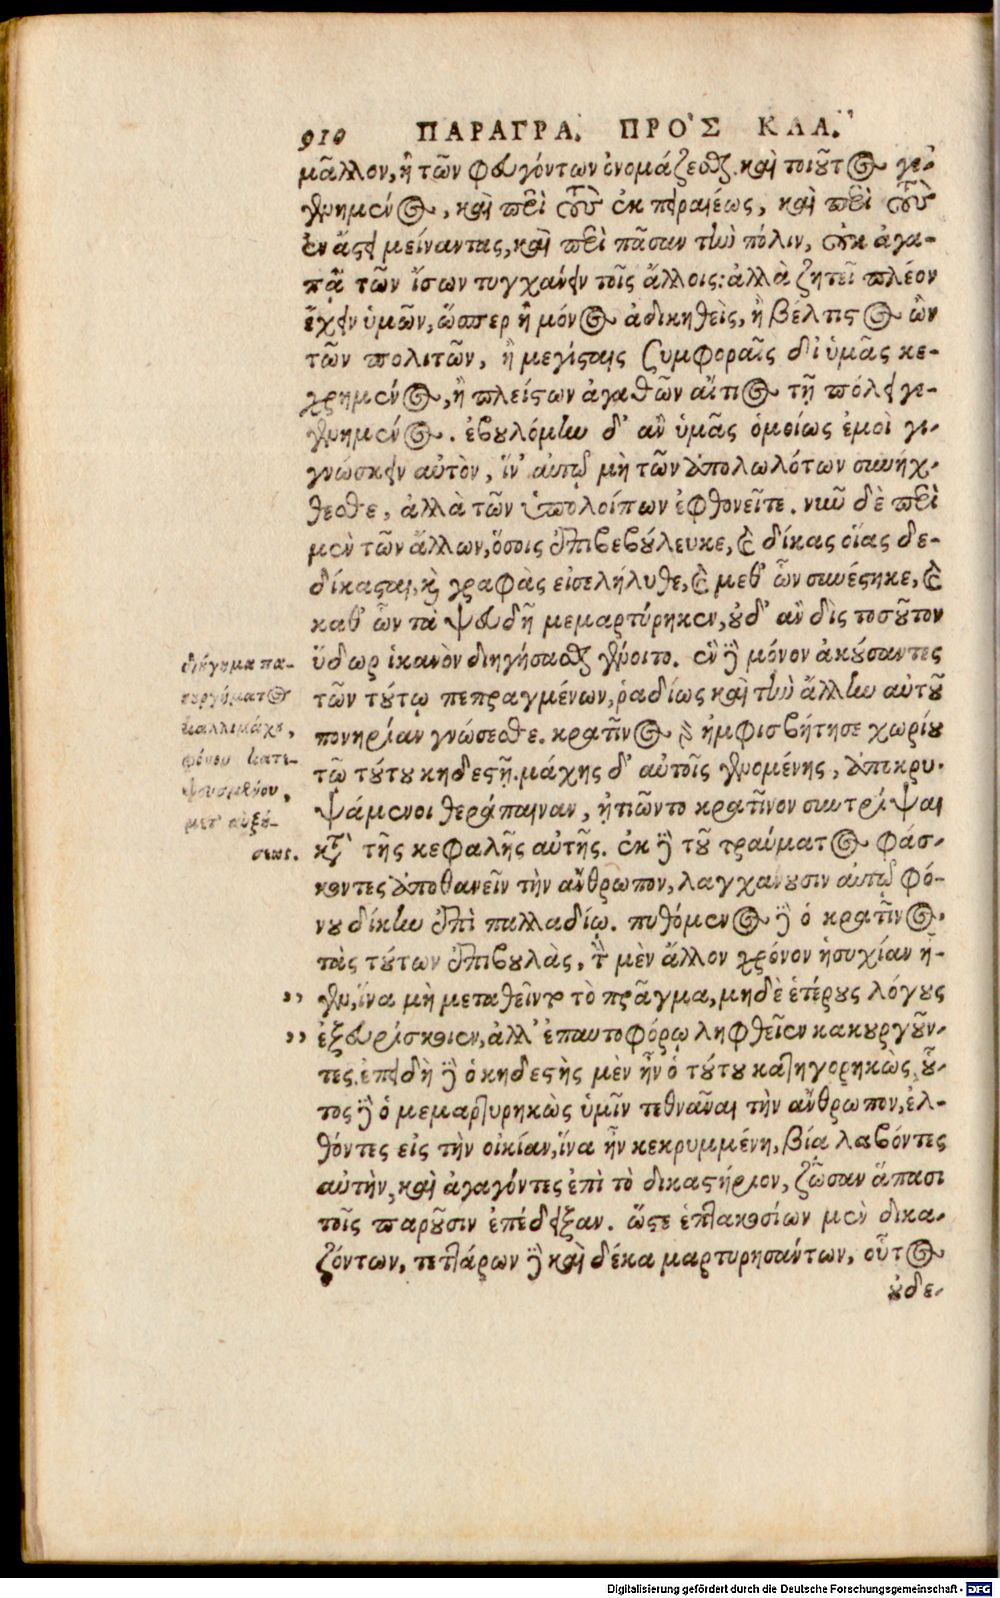 910 ΠΑΡΑΓΡΑ. ΠΡΟῪΣ ΚΑΛ.
μᾶλλον, ἢ τῶν φευγόντων ὀνομάζεσθαι. καὶ τοιοῦτος γε-
γενημένος, καὶ περὶ τοὺς ἐκ πειραιέως, καὶ περὶ τοὺς
ἐν ἄστει μείναντας, καὶ περὶ πᾶσαν τὴν πόλιν, οὐκ ἀγα-
πᾷ τῶν ἴσων τυγχάνειν τοῖς ἄλλοις: ἀλλὰ ζητεῖ πλέον
ἔχειν ὑμῶν, ὥσπερ ἢ μόνος ἀδικηθεὶς, ἢ βέλτιστος ὢν
τῶν πολιτῶν, ἢ μεγίσταις συμφοραῖς δι' ὑμᾶς κε-
χρημένος, ἢ πλείστων ἀγαθῶν αἴτιος τῇ πόλει γε-
γενημένος. ἐβουλόμην δ' ἂν ὑμᾶς ὁμοίως ἐμοὶ γι-
γνώσκειν αὐτὸν, ἵν' αὐτῷ μὴ τῶν ἀπολωλότων συνήχ-
θεσθε, ἀλλὰ τῶν ὑπολοίπων ἐφθονεῖτε. νῦν δὲ περὶ
μὲν τῶν ἄλλων, ὅσοις ἐπιβεβούλευκε, καὶ δίκας οἵας δε-
δίκασται, καὶ γραφὰς εἰσελήλυθε, καὶ μεθ' ὧν συνέστηκε, καὶ
καθ' ὧν τὰ ψευδῆ μεμαρτύρηκεν, οὐδ' ἂν δὶς τοσοῦτον
ὕδωρ ἱκανὸν διηγήσασθαι γένοιτο. ἓν δὲ μόνον ἀκούσαντες
τῶν τούτῳ πεπραγμένων, ῥαδίως καὶ τὴν ἄλλην αὐτοῦ
πονηρίαν γνώσεσθε. κρατῖνος γὰρ ἠμφισβήτησε χωρίου
τῷ τούτου κηδεστῇ. μάχης δ' αὐτοῖς γενομένης, ἀποκρυ-
ψάμενοι θεράπαιναν, ᾐτιῶντο κρατῖνον συντρίψαι
κατὰ τῆς κεφαλῆς αὐτῆς. ἐκ δὲ τοῦ τραύματος φάσ-
κοντες ἀποθανεῖν τὴν ἄνθρωπον, λαγχάνουσιν αὐτῷ φό-
νου δίκην ἐπὶ παλλαδίῳ. πυθόμενος δὲ ὁ κρατῖνος
τὰς τούτων ἐπιβουλὰς, τὸν μὲν ἄλλον χρόνον ἡσυχίαν ἦ-
γεν, ἵνα μὴ μεταθεῖντο τὸ πρᾶγμα, μηδὲ ἑτέρους λόγους
ἐξευρίσκοιεν, ἀλλ' ἐπαυτοφόρῳ ληφθεῖεν κακουργοῦν-
τες. ἐπειδὴ δὲ ὁ κηδεστὴς μὲν ἦν ὁ τούτου κατηγορηκὼς, οὗ-
τος δὲ ὁ μεμαρτυρηκὼς ὑμῖν τεθνᾶναι τὴν ἄνθρωπον, ἐλ-
θόντες εἰς τὴν οἰκίαν, ἵνα ἦν κεκρυμμένη, βίᾳ λαβόντες
αὐτὴν, καὶ ἀγαγόντες ἐπὶ τὸ δικαστήριον, ζῶσαν ἅπασι
τοῖς παροῦσιν ἐπέδειξαν. ὥστε ἑπτακοσίων μὲν δικα-
ζόντων, τεττάρων δὲ καὶ δέκα μαρτυρησάντων, οὗτος
οὐδε-
διήγημα πα-
νουργήματος
καλλιμάχου,
φόνου κατε-
ψευσμένου,
μετ' αὐξή-
σεως.
Digitalisierung gefördert durch die Deutsche Forschungsgemeinschaft - DFG